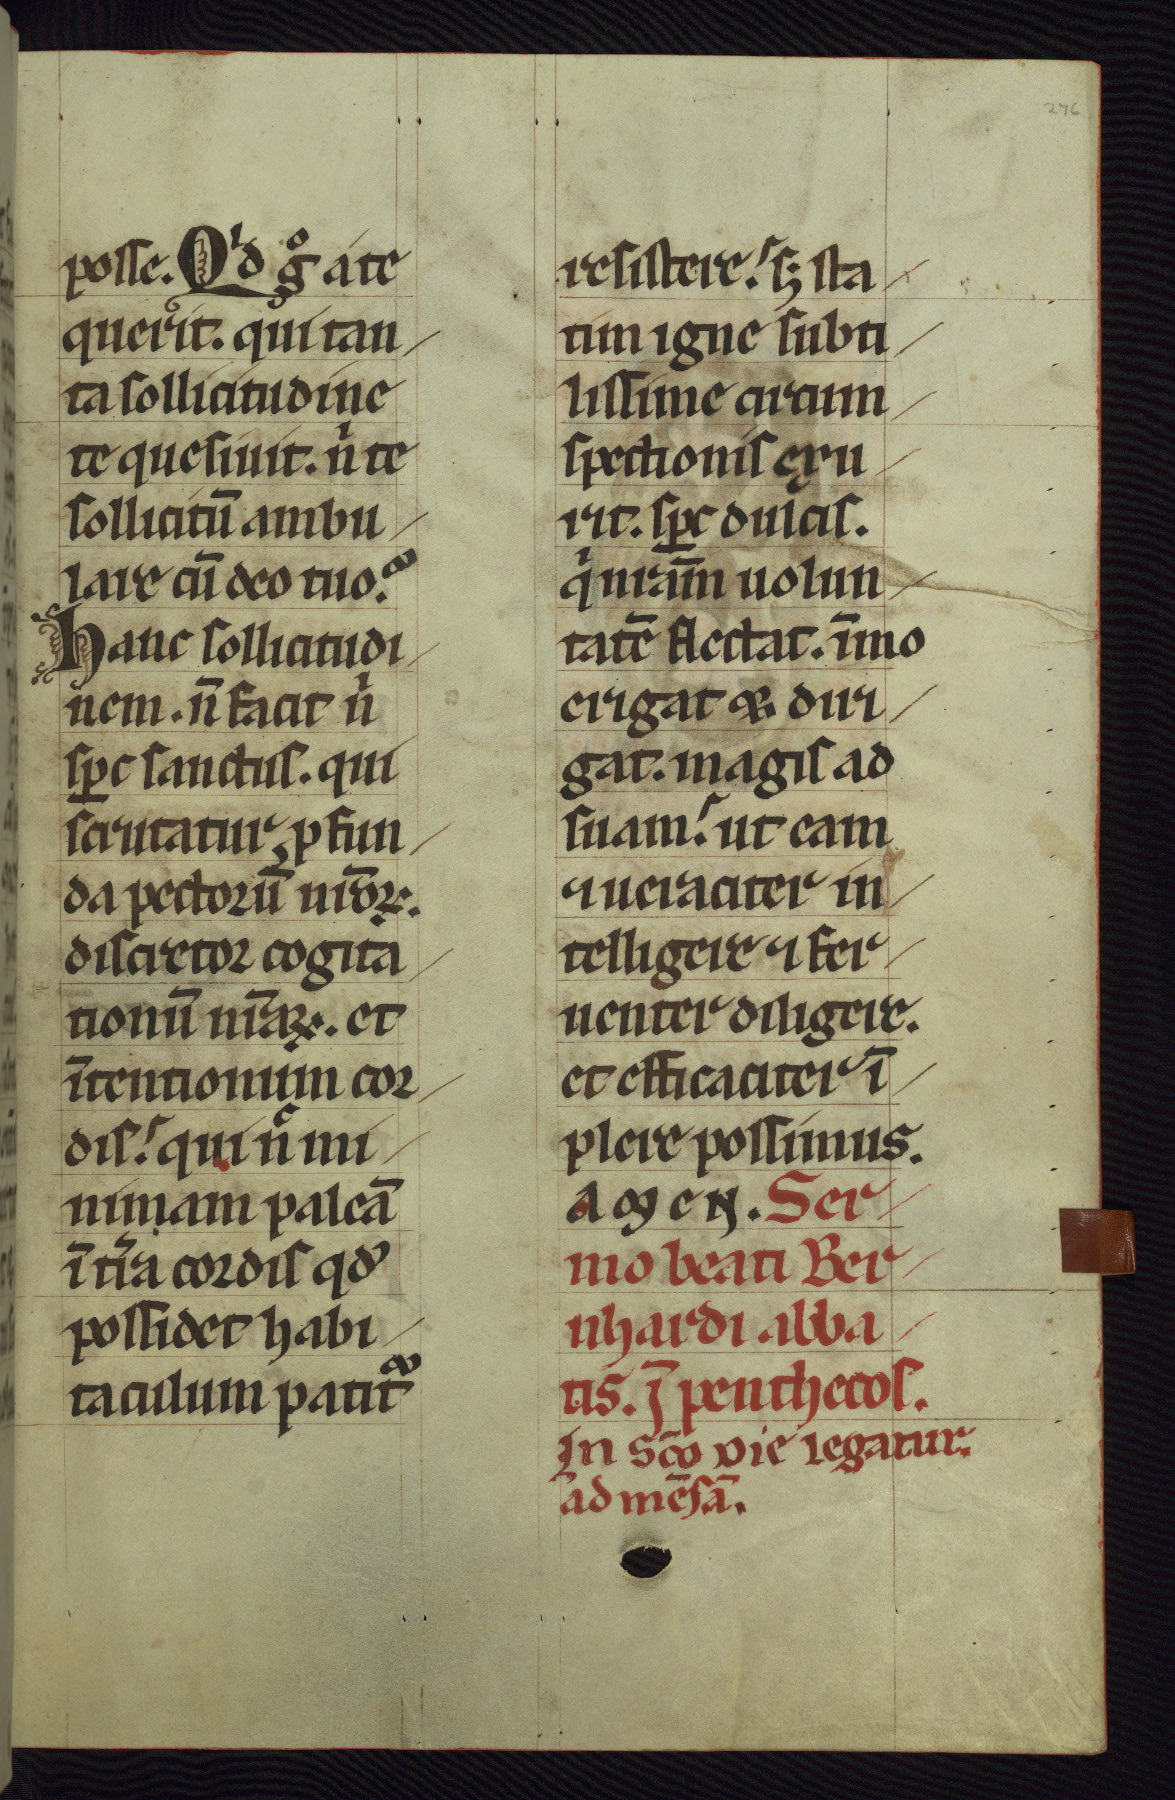 276
posse. Qͥd gͦ a te
querit. qui tan
ta sollicitudine
te quesiuit. nͥ te
sollicitū ambu
lare cū deo tuo.
Hanc sollicitudi
nem. n̄ facit nͥ
sp̄c sanctus. qui
scrutatur ꝓfun
da pectorū nr̄oꝝ.
discretor cogita
tionū nr̄aꝝ. et
ītentionum cor
dis. qui nͨ mi
nimam paleā
ī tr̄a cordis qd̓
possidet habi
taculum patit᷑
resistere. sꝫ sta
tim igne subti
lissime circum
spectionis exu
rit. sp̄c dulcis.
qͥ nr̄am uolun
tatē flectat. īmo
erigat ⁊ diri
gat. magis ad
suam. ut eam
⁊ ueraciter in
telligere ⁊ fer
uenter diligere.
et efficaciter ī
plere possimus.
amen. Ser
mo beati Ber
nhardi abba
tis. J penthecos.
In sc̄o die legatur.
ad mēsā.